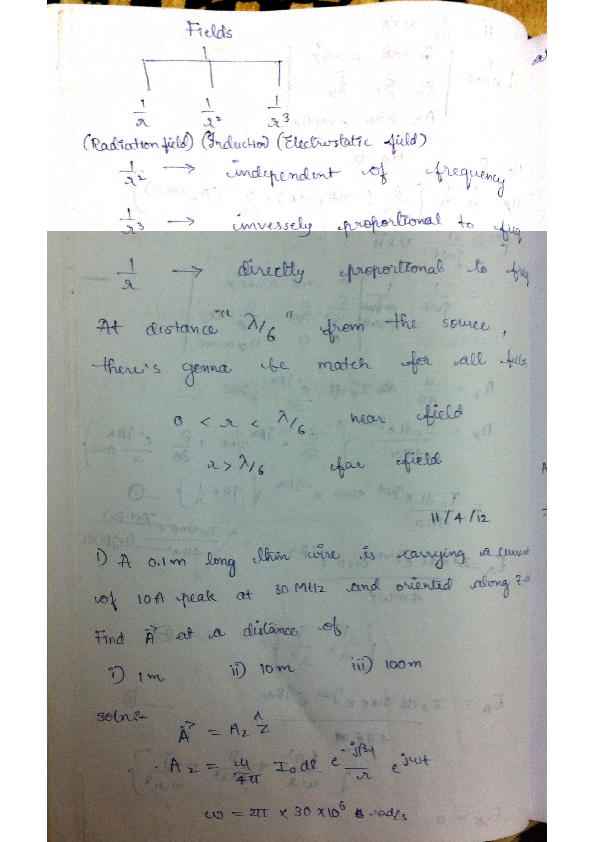 Fields
1/r 1/r² 1/r³
(Radiation field) (Induction) (Electrostatic field)
1/r² → independent of frequency
1/r³ → inversely proportional to freq
1/r → directly proportional to freq
At distance "λ/6" from the source,
there's gonna be match for all
0 < r < λ/6 near field
r > λ/6 far field
11/4/12
1) A 0.1m long thin wire is carrying a current
of 10A peak at 30 MHz and oriented along
Find A⃗ at a distance of
i) 1m ii) 10m iii) 100m
soln:-
A⃗ = A_z ẑ
A_z = μ/4π I₀dl e^(-jβr)/r e^(jωt)
ω = 2π × 30 × 10⁶ rad/s